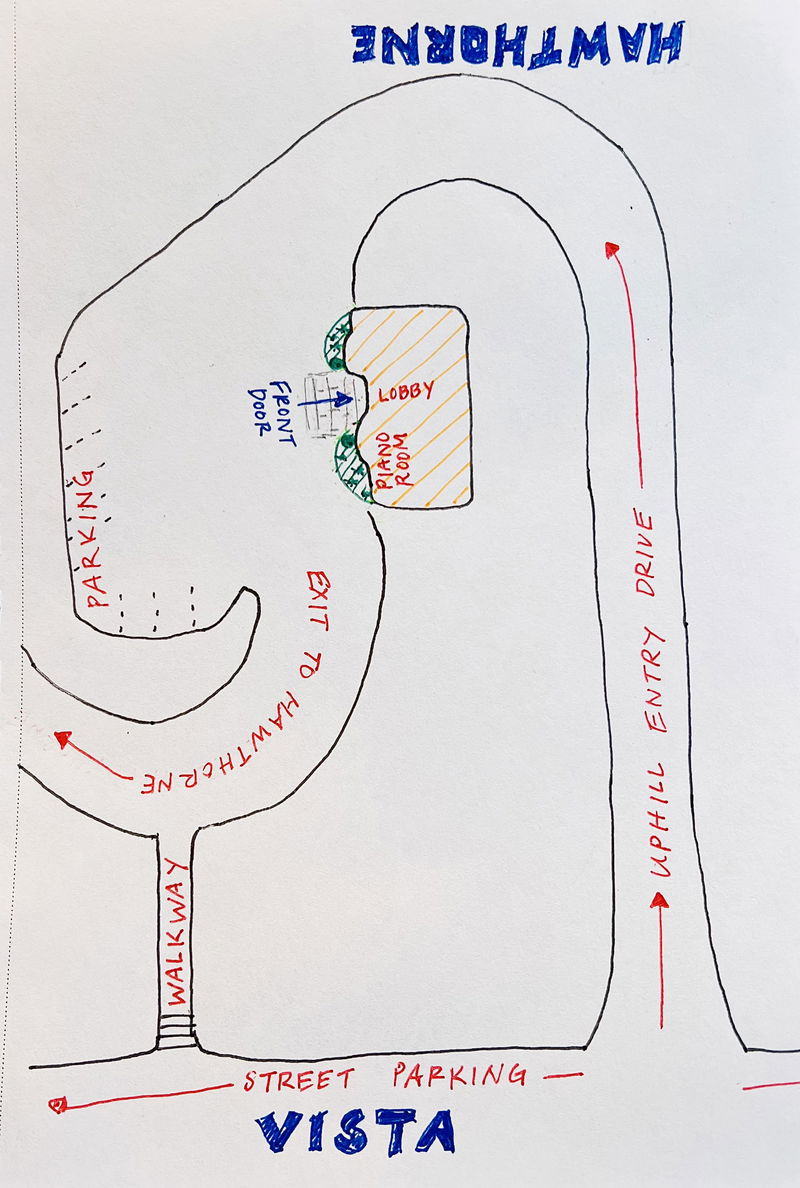 HAWTHORNE
LOBBY
FRONT
DOOR
PIANO
ROOM
PARKING
EXIT TO HAWTHORNE
UPHILL ENTRY DRIVE
WALKWAY
STREET PARKING
VISTA